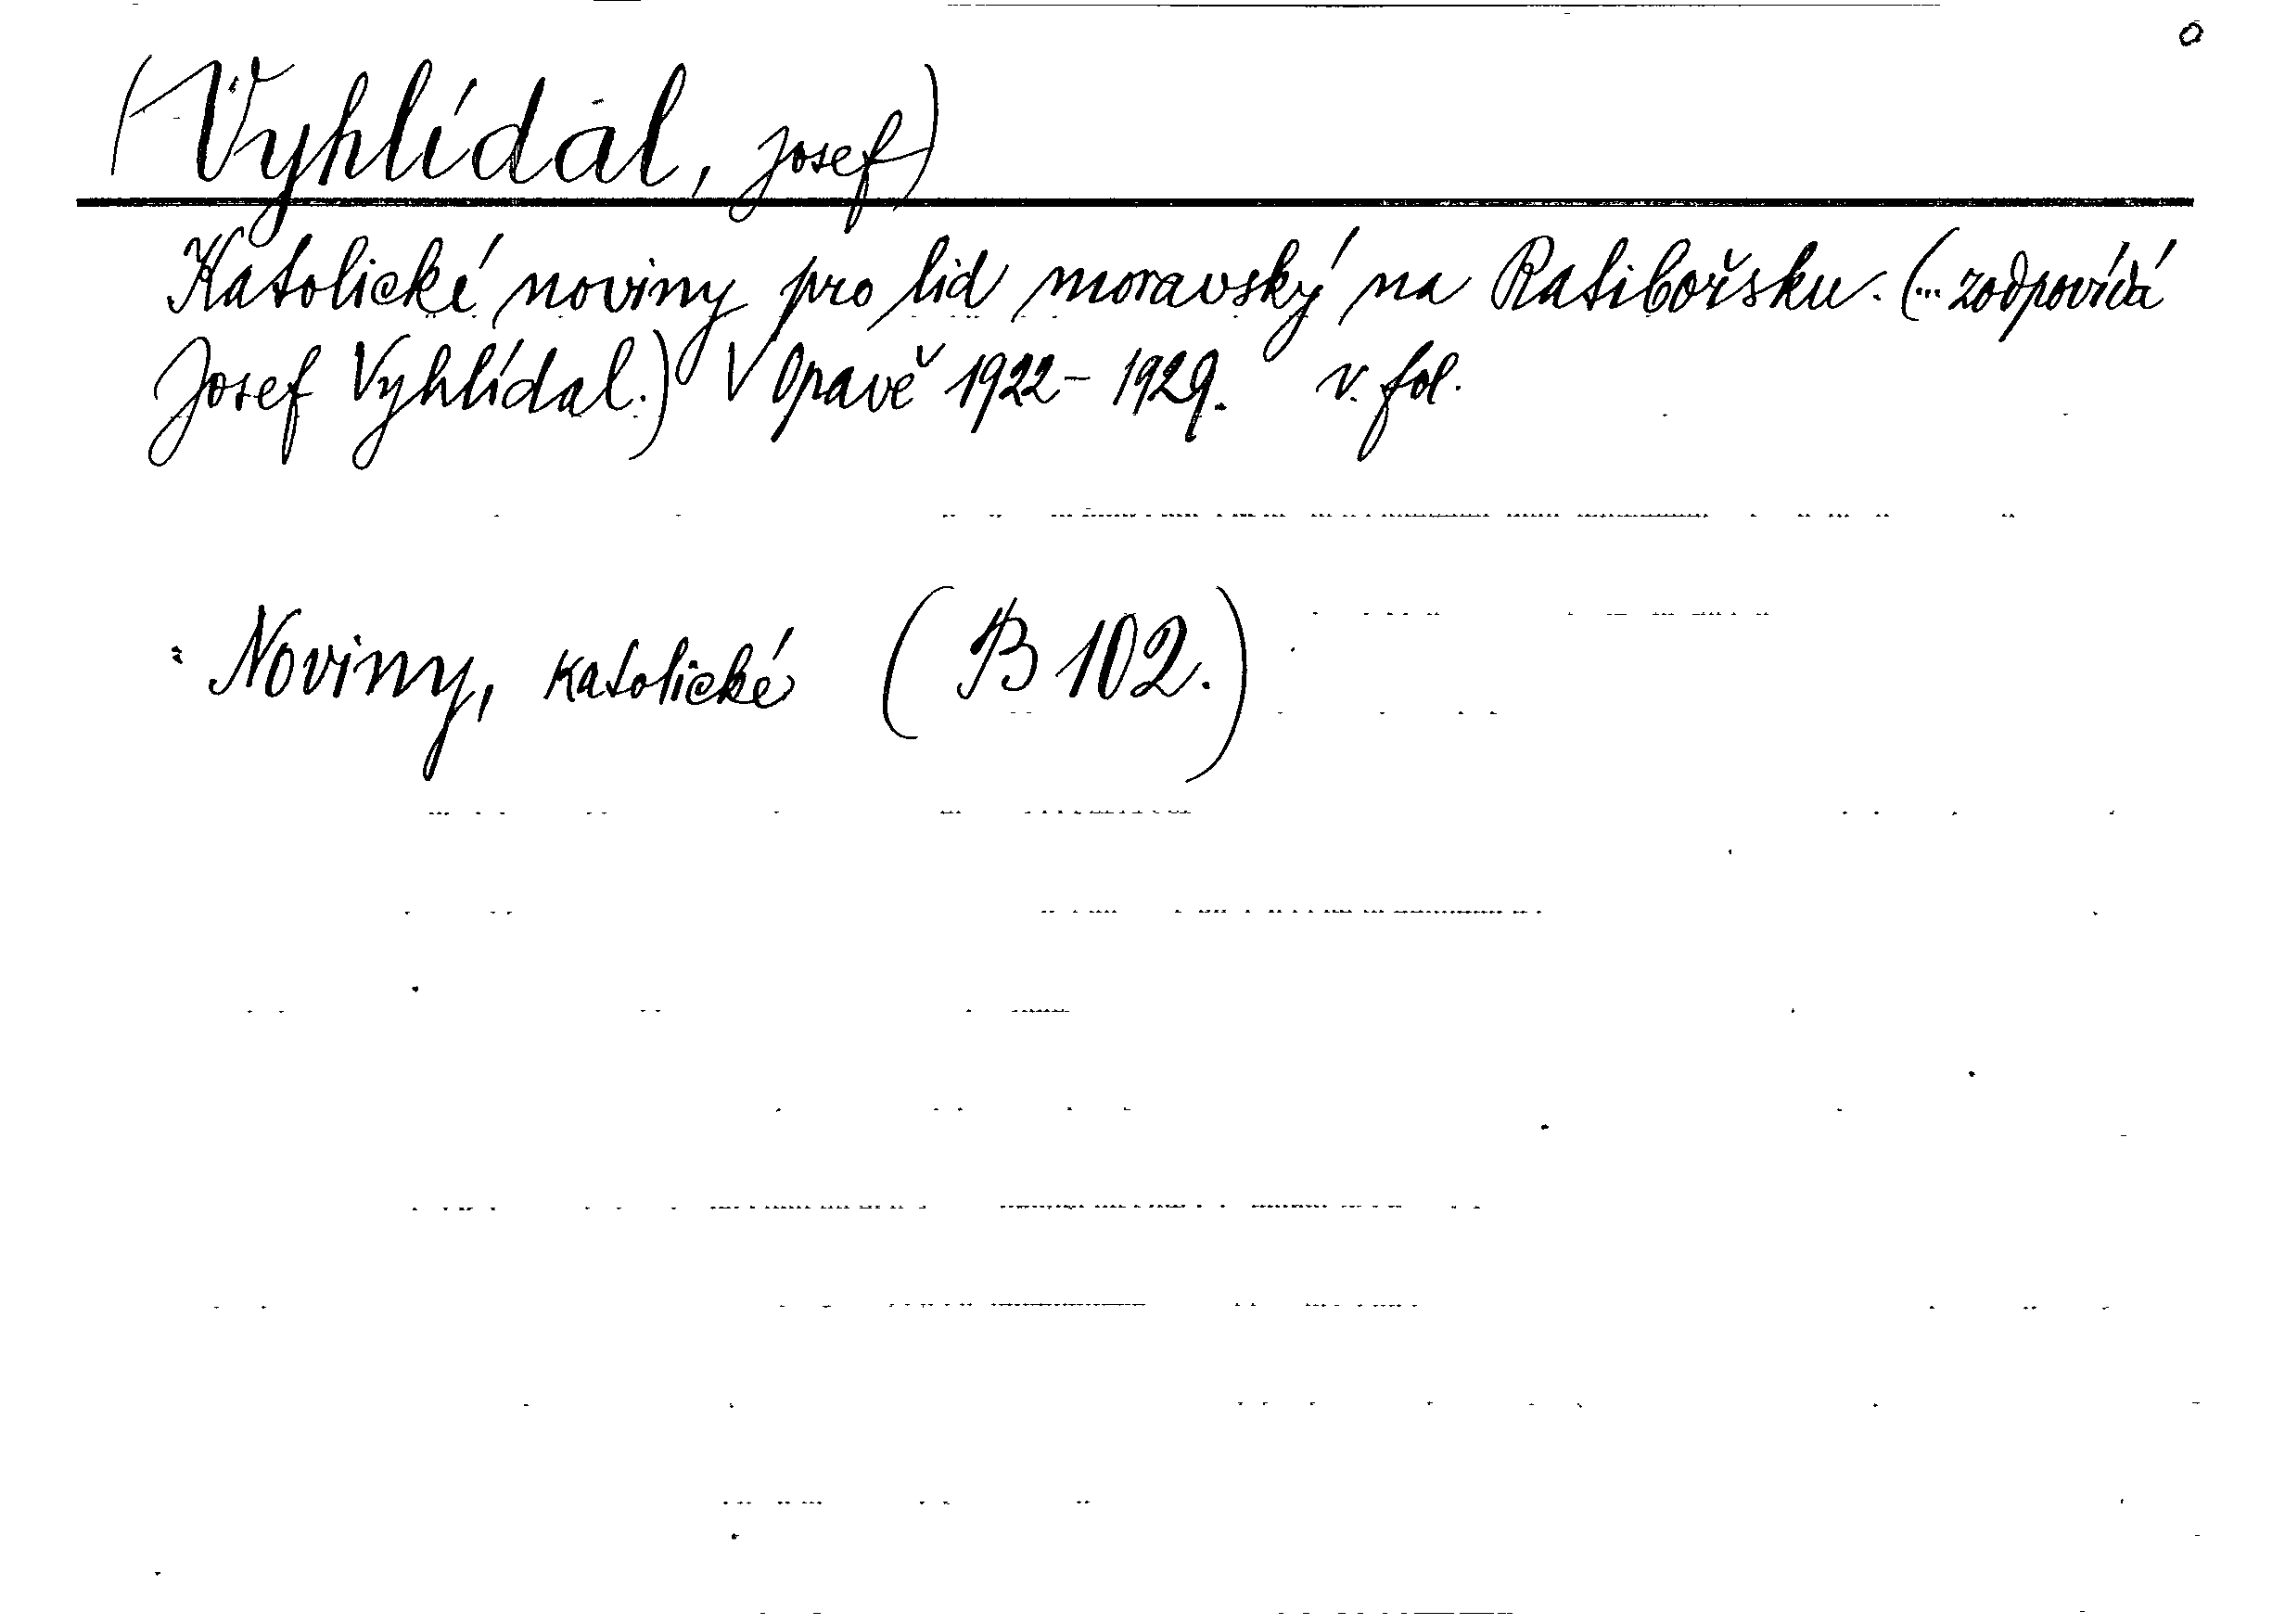 o
(Vyhlídal, Josef)
Katolické noviny pro lid moravský na Ratibořsku. (... zodpovídá
Josef Vyhlídal.) V Opavě 1922-1929. v. fol.
: Noviny, katolické (B 102.)